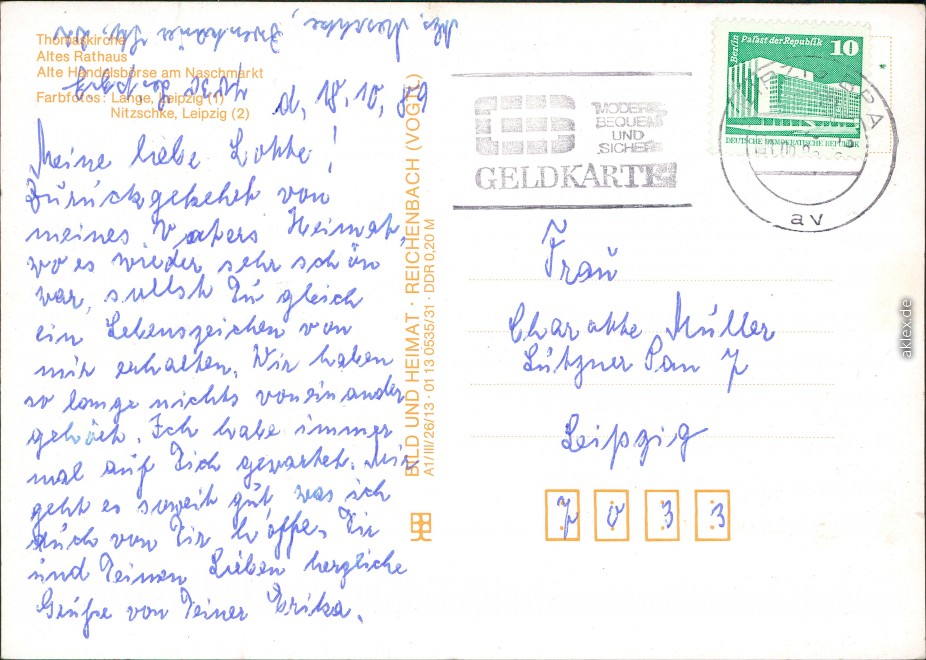 Thomaskirche
Altes Rathaus
Alte Handelsbörse am Naschmarkt
Farbfotos: Lange, Leipzig (1)
Nitzschke, Leipzig (2)
d. 18.10.89
Meine liebe Lotte!
Zurückgekehrt von
meines Vaters Heimat,
wo es wieder sehr schön
war, sollst Du gleich
ein Lebenszeichen von
mir erhalten. Wir haben
so lange nichts voneinander
gehört. Ich habe immer
mal auf Dich gewartet. Mir
geht es soweit gut, was ich
auch von Dir hoffe. Dir
und Deinen Lieben herzliche
Grüße von Deiner Erika.
BILD UND HEIMAT · REICHENBACH (VOGTL)
A1/III/26/13 · 01 13 0535/31 · DDR 0,20 M
MODERN
BEQUEM
UND
SICHER
GELDKARTE
Berlin Palast der Republik 10
DEUTSCHE DEMOKRATISCHE REPUBLIK
av
Frau
Charlotte Müller
Lützner Plan 7
Leipzig
7033
aklex.de